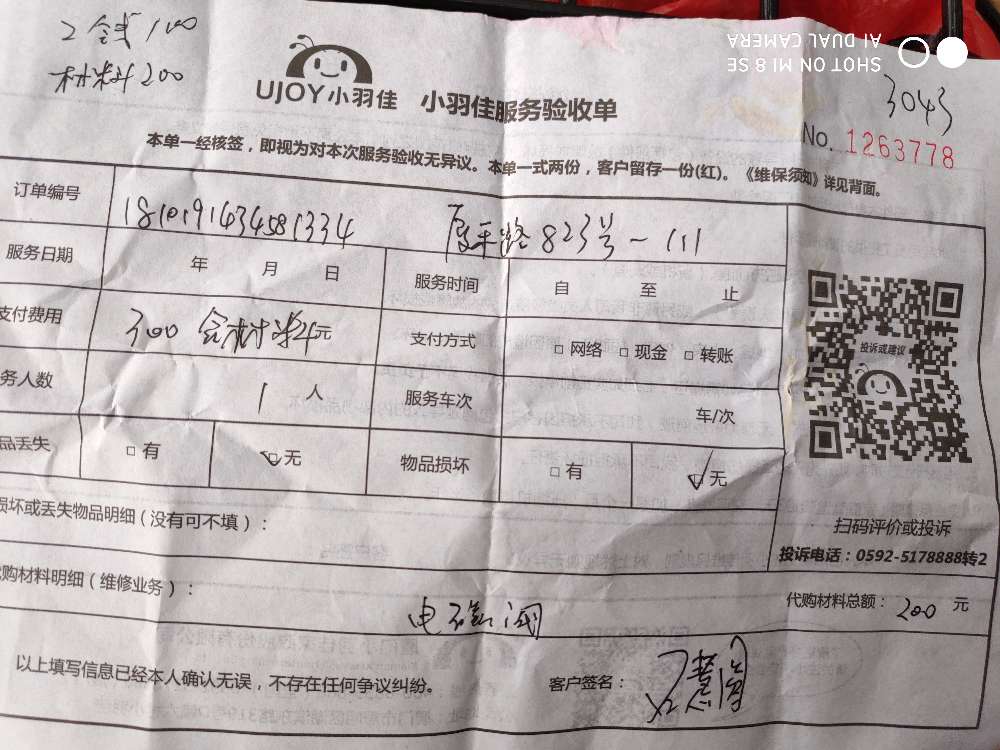 工钱100
材料200
SHOT ON MI 8 SE
AI DUAL CAMERA
3043
UJOY小羽佳 小羽佳服务验收单
No. 1263778
本单一经核签，即视为对本次服务验收无异议。本单一式两份，客户留存一份(红)。《维保须知》详见背面。
订单编号 厦禾路823号-111
服务日期 年 月 日 服务时间 自 至 止
支付费用 300含材料元 支付方式 □ 网络 □ 现金 □ 转账
务人数 1 人 服务车次 车/次
品丢失 □ 有 □ 无 物品损坏 □ 有 □ 无
投诉或建议
损坏或丢失物品明细（没有可不填）：
扫码评价或投诉
投诉电话：0592-5178888转2
代购材料明细（维修业务）： 电磁阀 代购材料总额： 200 元
以上填写信息已经本人确认无误，不存在任何争议纠纷。 客户签名：